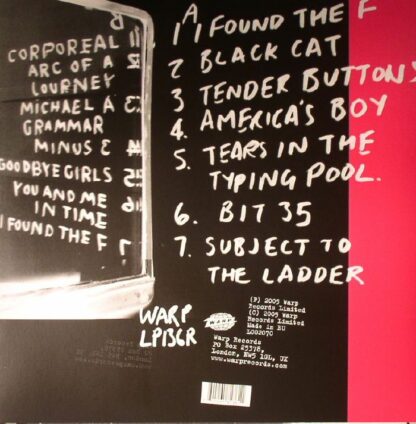 B
CORPOREAL 1
ARC OF A 2
LOURNEY
MICHAEL A 3
GRAMMAR
MINUS 3 4
GOODBYE GIRLS 5
YOU AND ME 6
IN TIME
I FOUND THE F 7
A
1 I FOUND THE F
2 BLACK CAT
3 TENDER BUTTONS
4. AMERICA'S BOY
5. TEARS IN THE
TYPING POOL.
6. BIT 35
7. SUBJECT TO
THE LADDER
WARP
LP136R
WARP
(P) 2005 Warp
Records Limited
(C) 2005 Warp
Records Limited
Made in EU
LC02070
Warp Records
PO Box 25378,
London, NW5 1GL, UK
www.warprecords.com